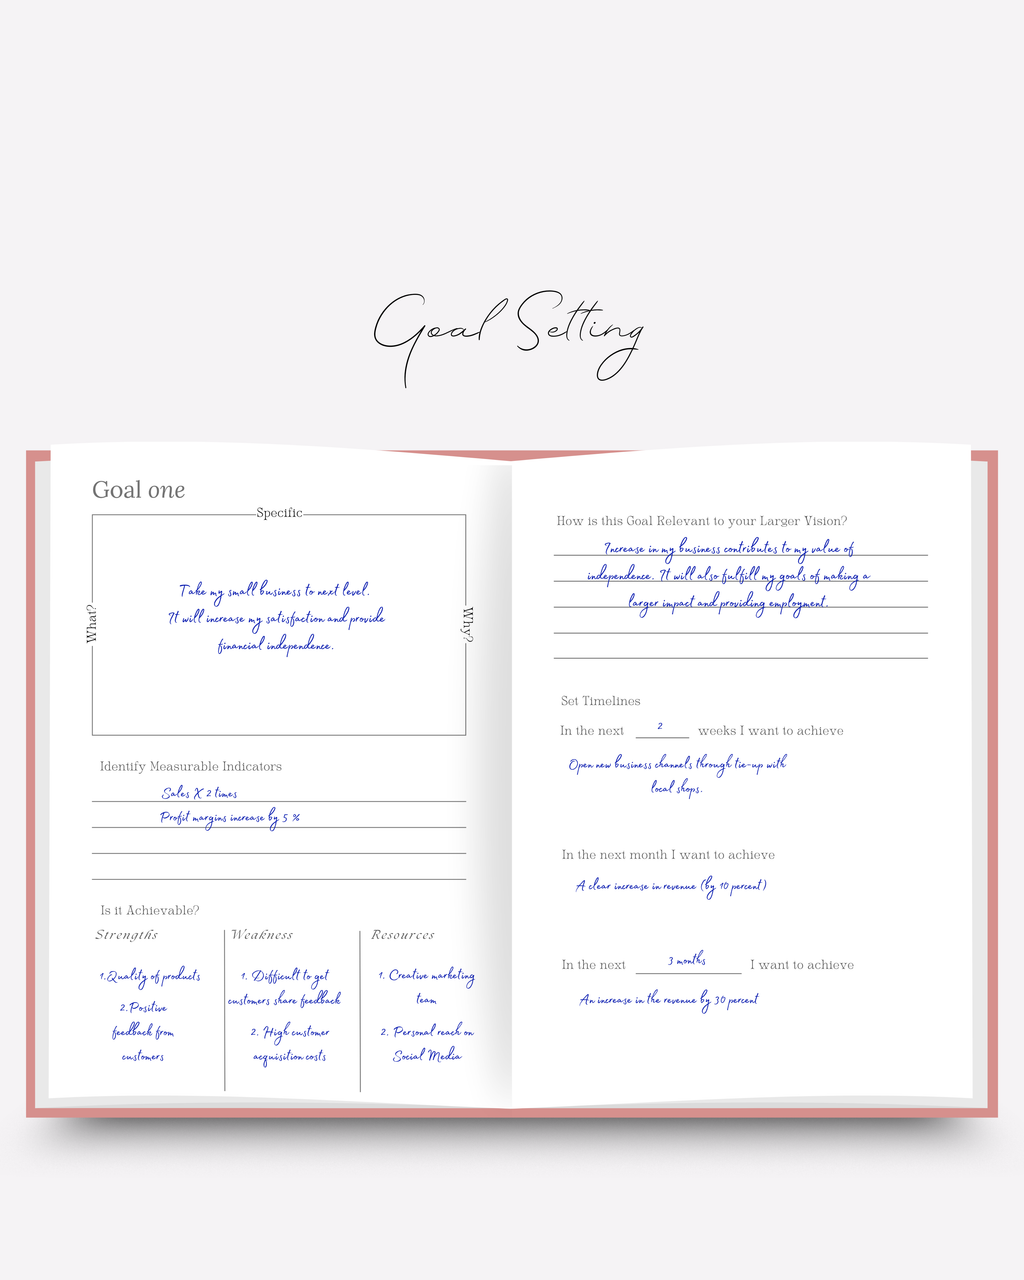 Goal Setting
Goal one
Specific
What?
Why?
Take my small business to next level.
It will increase my satisfaction and provide
financial independence.
Identify Measurable Indicators
Sales X 2 times
Profit margins increase by 5 %
Is it Achievable?
Strengths
1.Quality of products
2.Positive
feedback from
customers
Weakness
1. Difficult to get
customers share feedback
2. High customer
acquisition costs
Resources
1. Creative marketing
team
2. Personal reach on
Social Media
How is this Goal Relevant to your Larger Vision?
Increase in my business contributes to my value of
independence. It will also fulfill my goals of making a
larger impact and providing employment.
Set Timelines
In the next 2 weeks I want to achieve
Open new business channels through tie-up with
local shops.
In the next month I want to achieve
A clear increase in revenue (by 10 percent)
In the next 3 months I want to achieve
An increase in the revenue by 30 percent